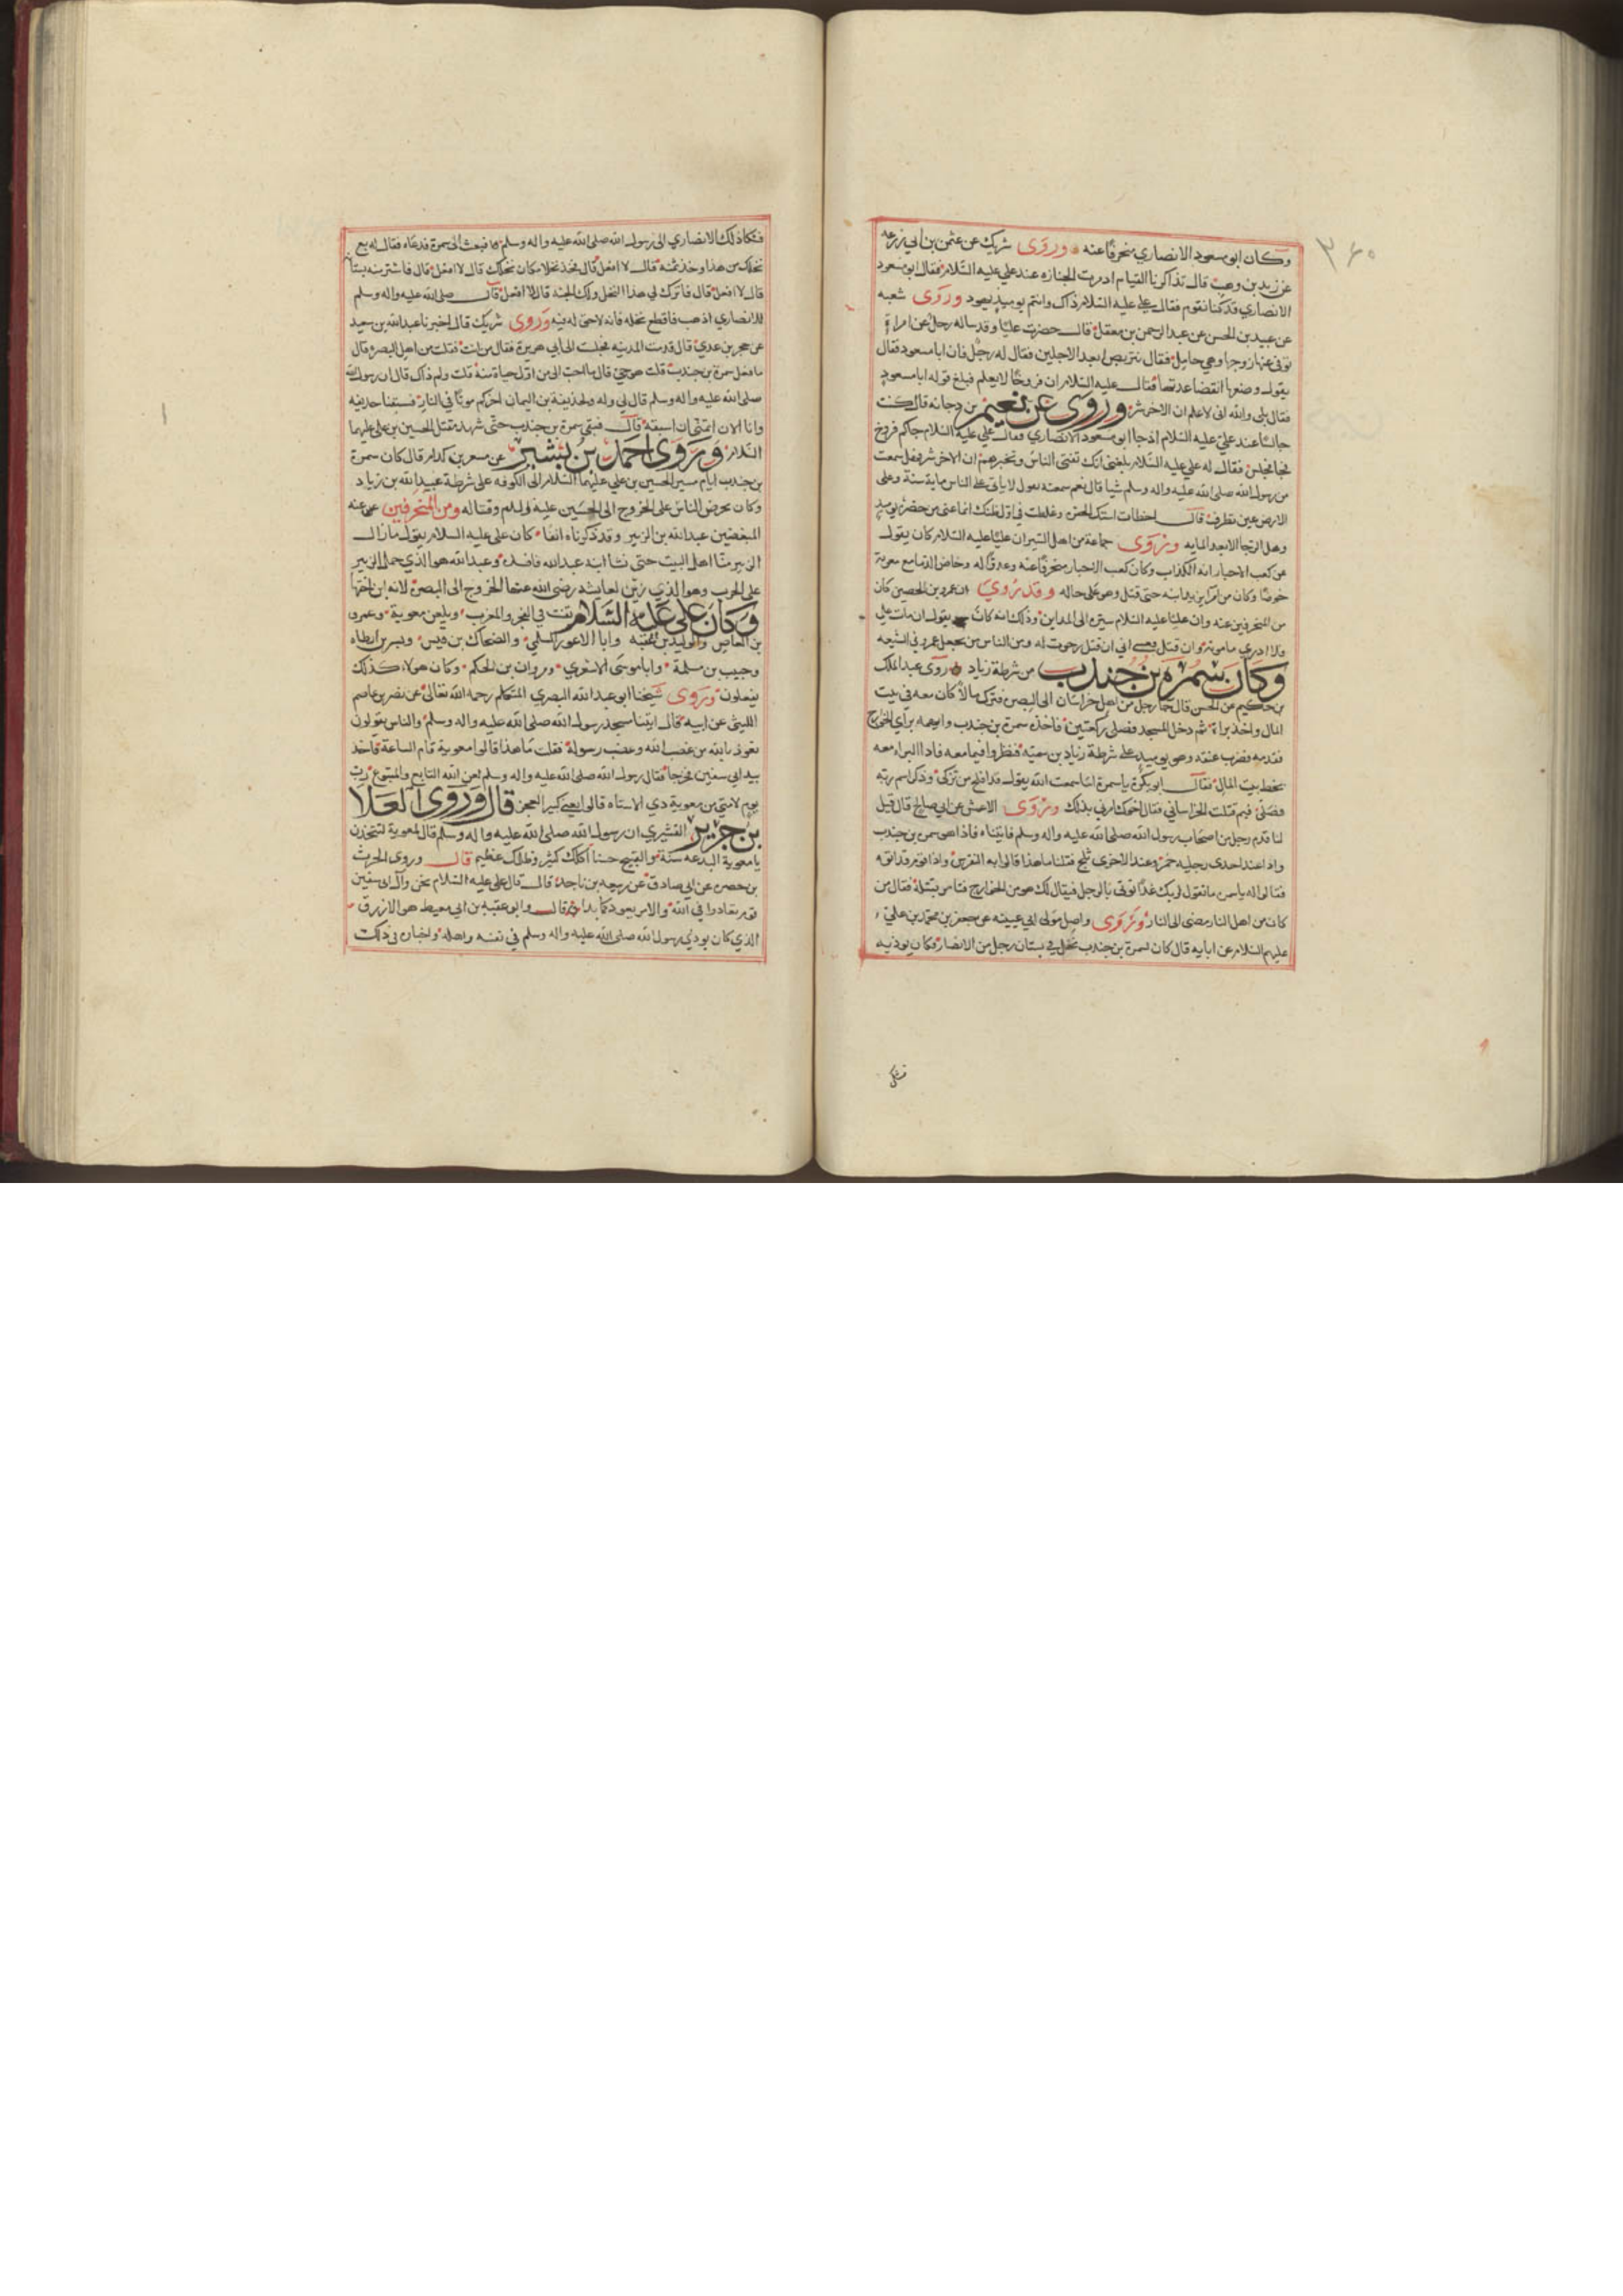 ٣٦٠
وكان ابو مسعود الانصاري منحرفا عنه وروى شريك عن عثمن بن ابي زرعه
عن زيد بن وهب قال تذاكرنا القيام اذ مرت الجنازه عند علي عليه السلام فقال ابو مسعود
الانصاري قد كنا نقوم فقال علي عليه السلام ذاك وانتم يوميذ يهود وروى شعبه
عن عبيد بن الحسن عن عبد الرحمن بن معقل قال حضرت عليا وقد ساله رجل عن امراة
توفى عنها زوجها وهي حامل فقال تتربص ابعد الاجلين فقال له رجل فان ابا مسعود فقال
يقول وضعها انقضا عدتها فقال عليه السلام ان فروخا لا يعلم فبلغ قوله ابا مسعود
فقال بلى والله اني لاعلم ان الاخر شر وروى عن نعيم بن دجانه قال كنت
جالسا عند علي عليه السلام اذ جا ابو مسعود الانصاري فقال علي عليه السلام جاكم فروخ
فجا فجلس فقال له علي عليه السلام بلغني انك تفتي الناس وتخبرهم ان الاخر شر فهل سمعت
من رسول الله صلى الله عليه واله وسلم شيا قال نعم سمعته يقول لا ياتي على الناس ماية سنة وعلى
الارض عين تطرف قال اخطات استك الحفره وغلطت في اول ظنك انما عنى من حضره يوميذ
وهل الرخا الا بعد المايه وروى جماعة من اهل السير ان عليا عليه السلام كان يقول
عن كعب الاحبار انه الكذاب وكان كعب الاحبار منحرفا عنه
وقد روي ان عمرو بن الحصين كان
من المنحرفين عنه وان عليا عليه السلام سيره الى المداين وذلك انه كان يقول ان مات علي
فلا ادري ما موته وان قتل فعسى اني ان قتل رجوت له ومن الناس من يجعل عمرو في الشيعه
وكان سمره بن جندب من شرطة زياد روى عبد الملك
بن حكيم عن الحسن قال جا رجل من اهل خراسان الى البصره فترك مالا كان معه في بيت
المال واخذ براة ثم دخل المسجد فصلى ركعتين فاخذه سمرة بن جندب واتهمه براي الخوارج
فقدمه فضرب عنقه وهو يوميذ على شرطة زياد بن سميه فنظروا فيما معه فاذا البراه معه
بخط بيت المال فقال ابو بكرة يا سمرة اما سمعت الله يقول قد افلح من تزكى وذكر اسم ربه
فصلى فيم قتلت الخراساني فقال اخوك امرني بذلك وروى الاعمش عن ابي صالح قال قيل
لنا قدم رجل من اصحاب رسول الله صلى الله عليه واله وسلم فاتيناه فاذا هو سمرة بن جندب
واذا عند احدى رجليه خمر وعند الاخرى ثلج فقلنا ما هذا قالوا به النقرس واذا قوم قد اتوه
فقالوا له يا سمره ما تقول لربك غدا توتى بالرجل فيقال لك هو من الخوارج فتامر بقتله فقال من
كان من اهل النار مضى الى النار وروى واصل مولى ابي عيينه عن جعفر بن محمد بن علي
عليهم السلام عن ابايه قال كان لسمرة بن جندب نخل في بستان رجل من الانصار فكان يوذيه
فشكى
فشكا ذلك الانصاري الى رسول الله صلى الله عليه واله وسلم فبعث الى سمرة فدعاه فقال له بع
نخلك من هذا وخذ ثمنه قال لا افعل قال فخذ نخلا مكان نخلك قال لا افعل قال فاشتر منه بستانه
قال لا افعل قال فاترك لي هذا النخل ولك الجنه قال لا افعل قال صلى الله عليه واله وسلم
للانصاري اذهب فاقطع نخله فانه لا حق له فيه وروى شريك قال اخبرنا عبد الله بن سعيد
عن حجر بن عدي قال قدمت المدينه فجلست الى ابي هريرة فقال من انت فقلت من اهل البصرة قال
ما فعل سمرة بن جندب قلت هو حي قال ما احب الي من اول حياة منه قلت ولم ذاك قال ان رسول الله
صلى الله عليه واله وسلم قال لي وله ولحذيفة بن اليمان اخركم موتا في النار فسبقنا حذيفه
وانا الان اتمنى ان اسبقه قال فبقى سمرة بن جندب حتى شهد مقتل الحسين بن علي عليهما
السلام وروى احمد بن بشير عن مسعر بن كدام قال كان سمرة
بن جندب ايام مسير الحسين بن علي عليهما السلام الى الكوفه على شرطة عبيد الله بن زياد
وكان يحرض الناس على الخروج الى الحسين عليه السلم وقتاله ومن المنحرفين عنه
المبغضين عبد الله بن الزبير وقد ذكرناه انفا كان علي عليه السلام يقول ما زال
الزبير منا اهل البيت حتى نشا ابنه عبد الله فافسده وعبد الله هو الذي حمل الزبير
على الحرب وهو الذي زين لعايشه رضى الله عنها الخروج الى البصرة
وكان علي عليه السلام يقنت في الفجر والمغرب ويلعن معوية وعمرو
بن العاص والوليد بن عقبه وابا الاعور السلمي والضحاك بن قيس وبسر بن ارطاه
وحبيب بن مسلمة وابا موسى الاشعري ومروان بن الحكم وكان هولاء كذلك
يفعلون وروى شيخنا ابو عبد الله البصري المتكلم رحمه الله تعالى عن نصر بن عاصم
الليثي عن ابيه قال اتيت مسجد رسول الله صلى الله عليه واله وسلم والناس يقولون
نعوذ بالله من غضب الله وغضب رسوله فقلت ما هذا قالوا معوية قام الساعة فاخذ
بيد ابي سفين فخرجا فقال رسول الله صلى الله عليه واله وسلم لعن الله التابع والمتبوع رب
يوم لامتي من معوية ذي الاستاه قالوا يعني كبير العجز قال وروى العلا
بن جرير القشيري ان رسول الله صلى الله عليه واله وسلم قال لمعوية لتتخذن
يا معوية البدعه سنة والقبيح حسنا اكلك كثير وظلمك عظيم قال وروى الحرث
بن حصيره عن ابي صادق عن ربيعه بن ناجد قال قال علي عليه السلام نحن وال ابي سفين
قوم تعادوا في الله والامر يعود كما بدا قال وابو عقبه بن ابي معيط هو الازرق
الذي كان يوذي رسول الله صلى الله عليه واله وسلم في نفسه واهله واخباره في ذلك